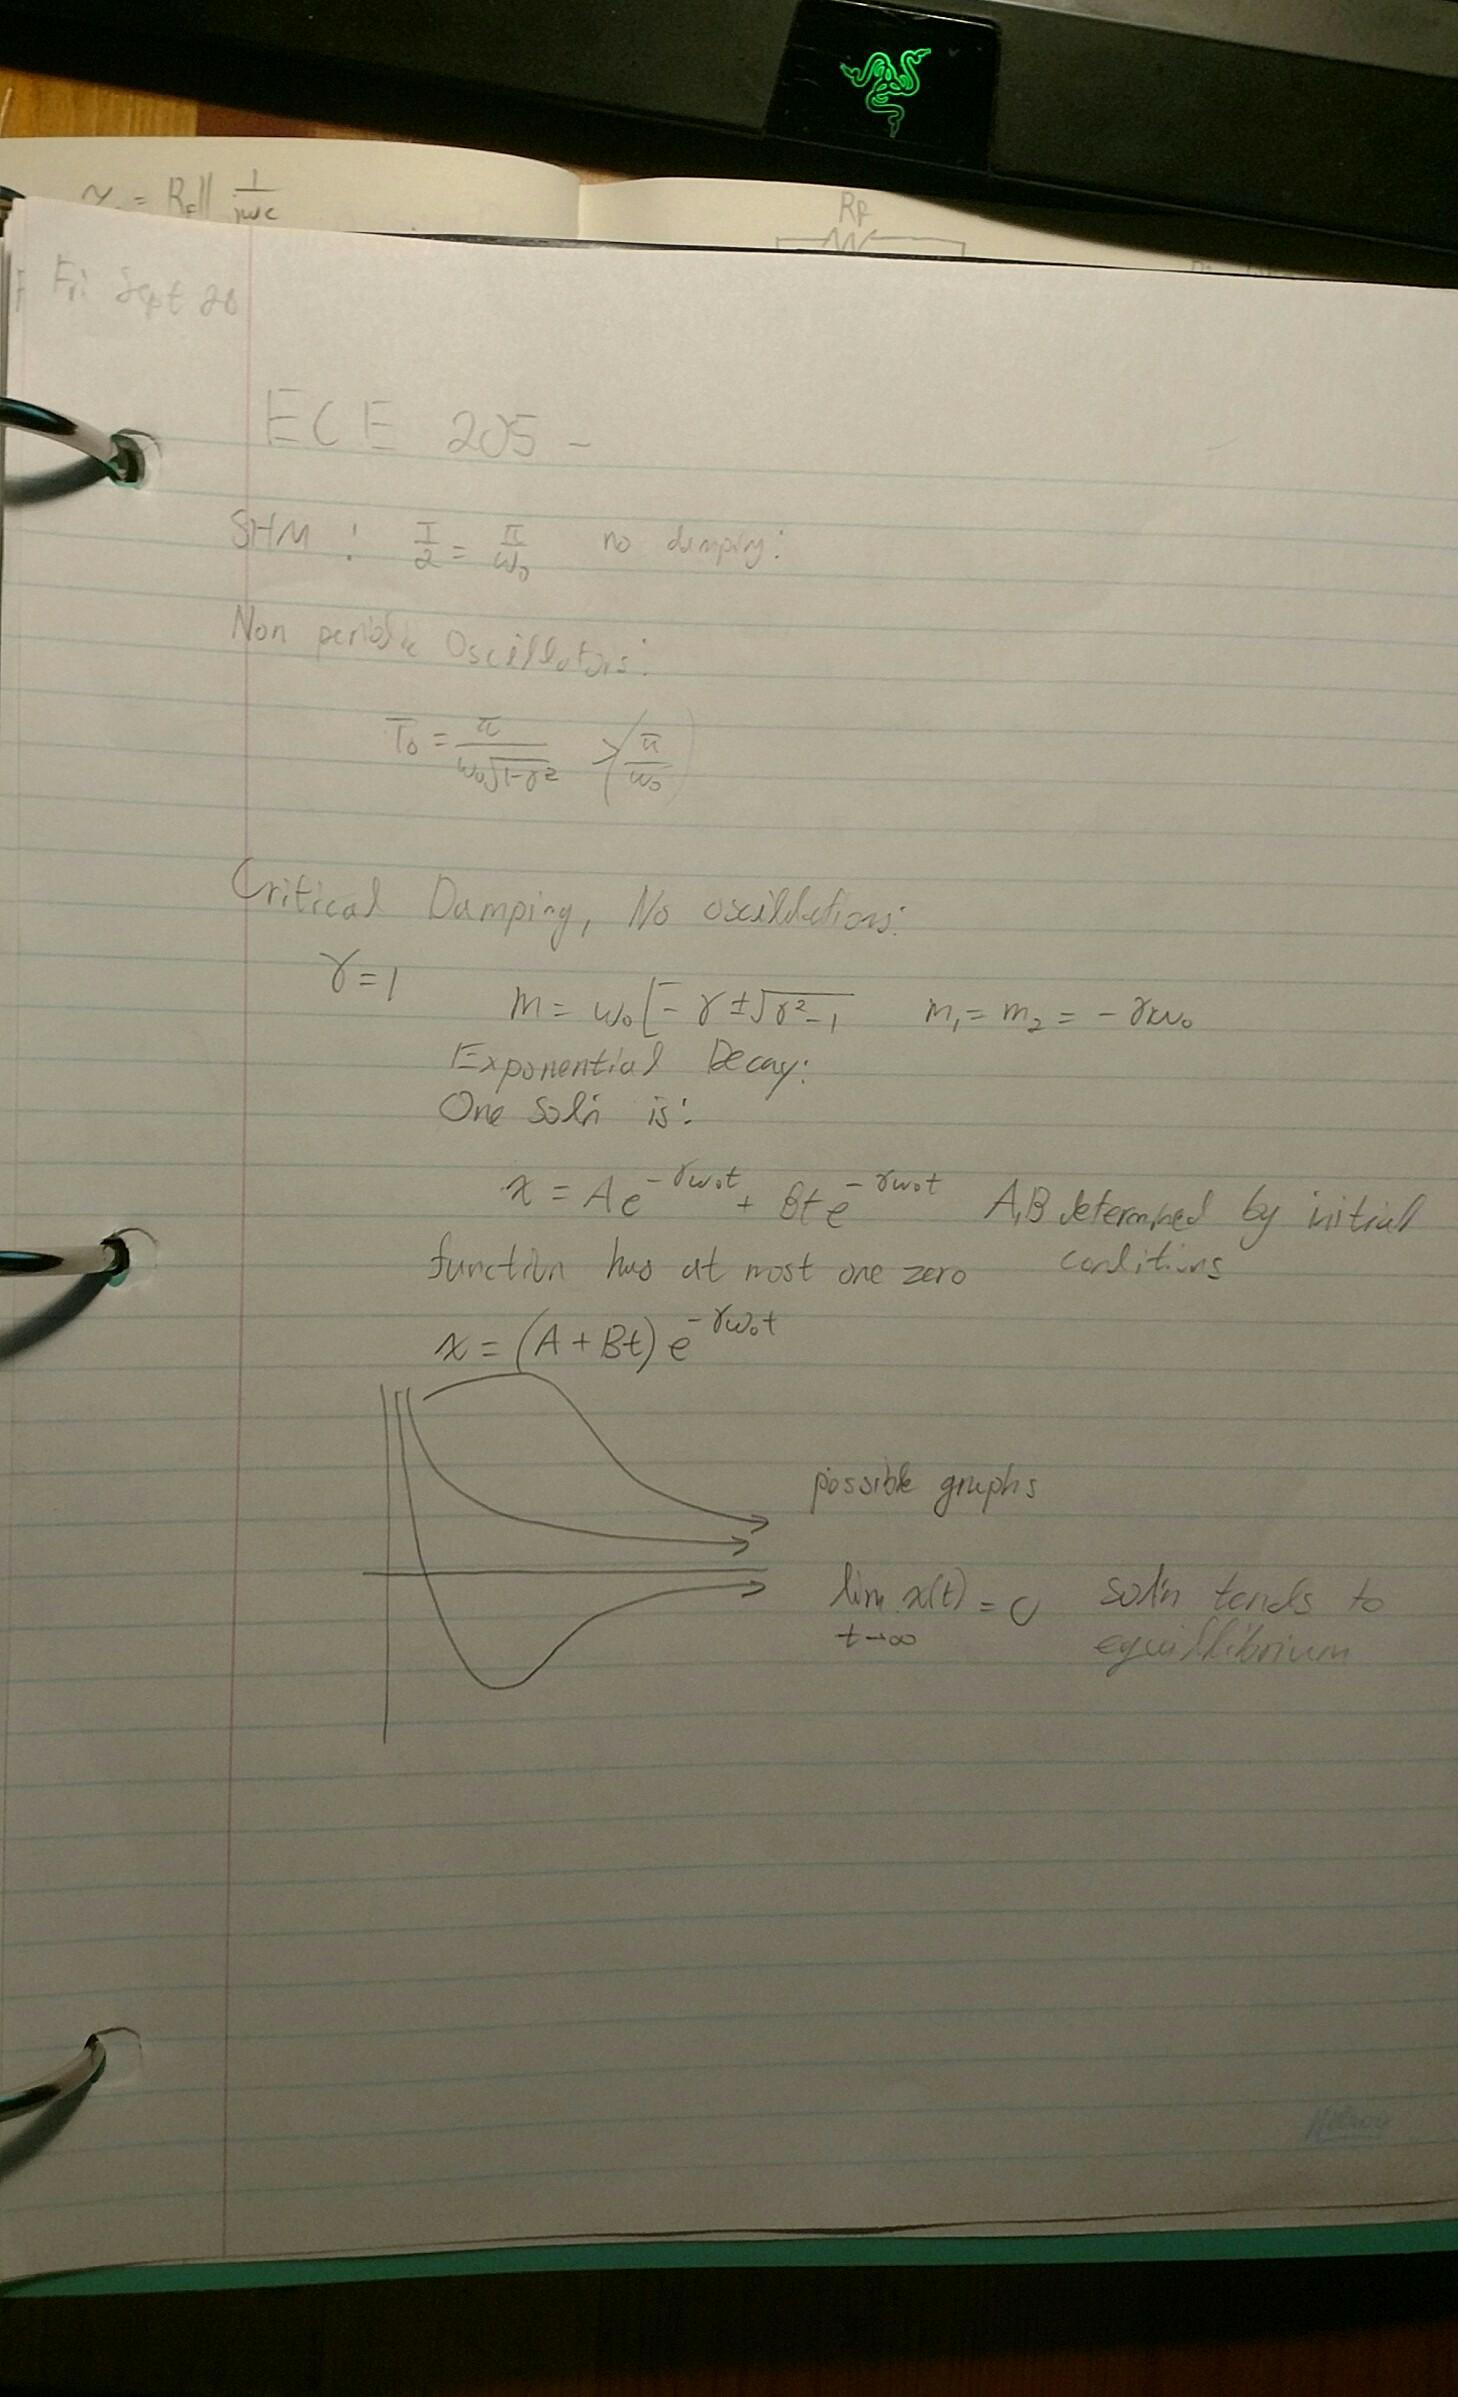 = R_F || 1/jωc
R_F
Fri Sept 28
ECE 205 -
SHM : T/2 = π/ω₀ no damping:
Non periodic Oscillators:
T₀ = π/(ω₀√(1-γ²)) > (π/ω₀)
Critical Damping, No oscillations:
γ=1 m = ω₀[-γ ± √(γ²-1) m₁ = m₂ = -γω₀
Exponential Decay:
One Sol'n is:
x = Ae^(-γω₀t) + Bte^(-γω₀t) A,B determined by initial
conditions
function has at most one zero
x = (A + Bt) e^(-γω₀t)
possible graphs
lim x(t) = 0 sol'n tends to
t→∞ equillibrium
Hilroy